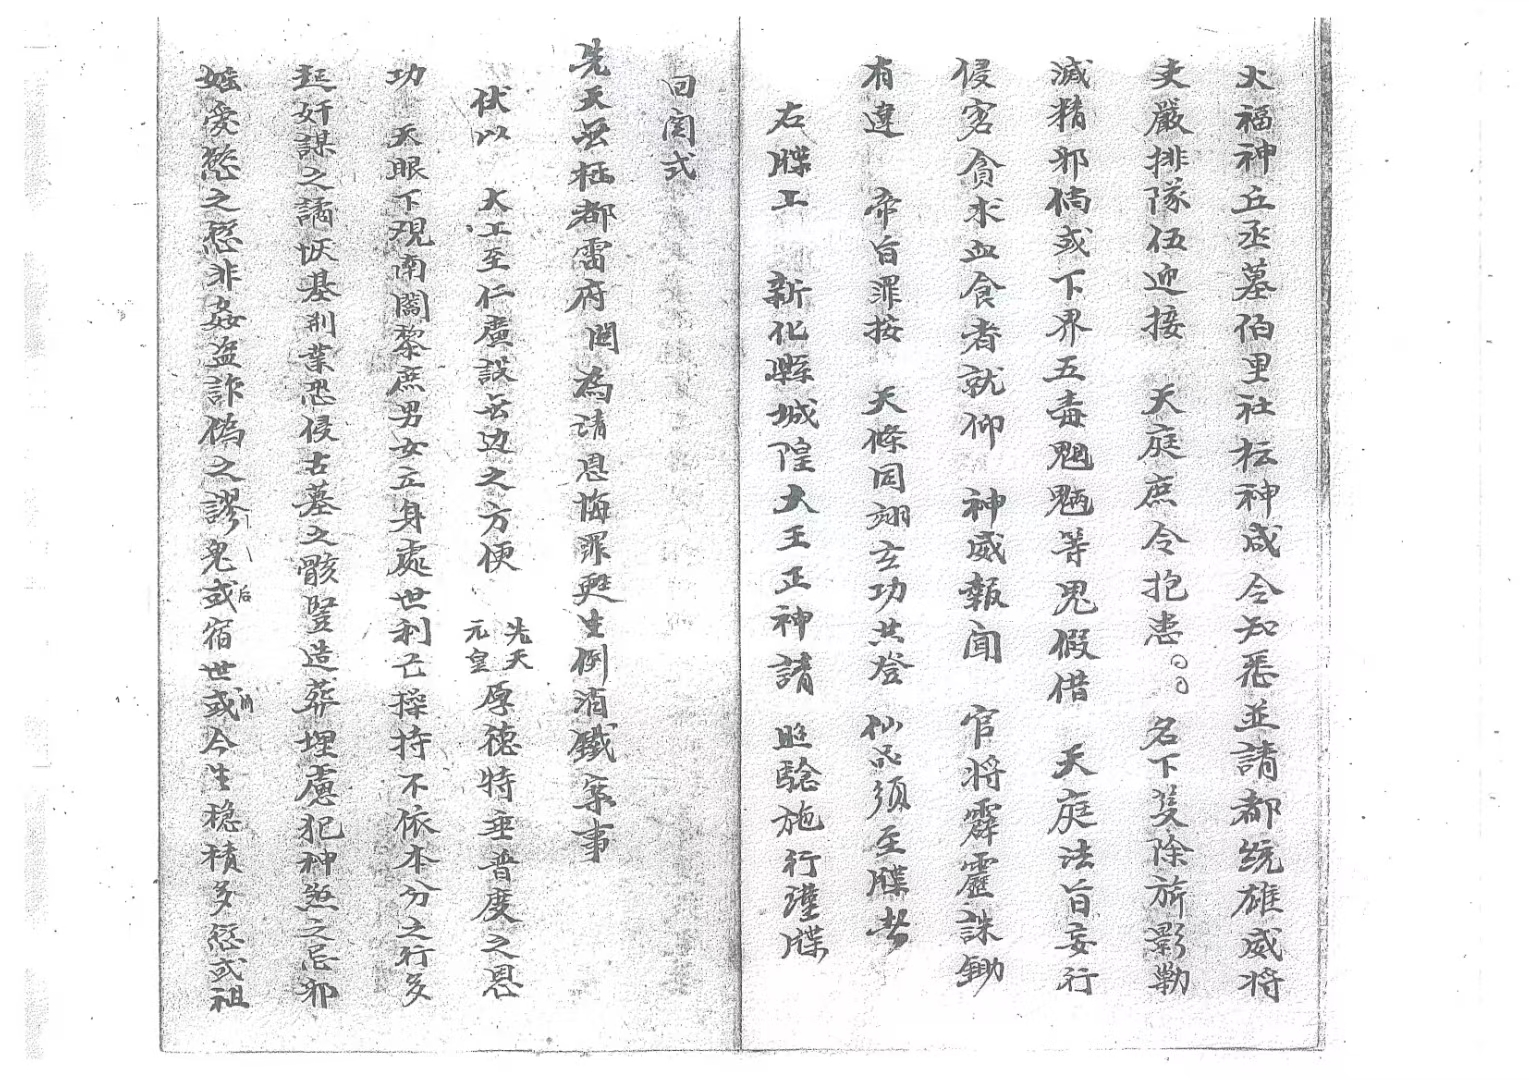 火福神丘丞墓伯里社坛神咸令知悉並請都統雄威將
吏嚴排隊伍迎接　天庭庶令抱患○○名下爰除旂影勦
滅精邪倘或下界五毒魍魎等鬼假借　天庭法旨妄行
侵害貪求血食者就仰　神威報聞　官将霹靂誅鋤
有違　帝旨罪按　天條同翊玄功共登　仙品須至牒者
右牒上　新化縣城隍大王正神請　照驗施行謹牒
回関式
先天無極都雷府関為請恩悔罪甦生倒消鐵案事
伏以　大上至仁廣設无边之方便　先天元皇厚德特垂普度之恩
功　天眼下覌南閻黎庶男女立身處世利己操持不依本分之行多
起奸謀之譎恢基刱業恐侵古墓之骸竪造葬埋慮犯神煞之忌邪
婬愛慾之愆非姦盗詐偽之謬鬼或后宿世或今生穏積多愆或祖